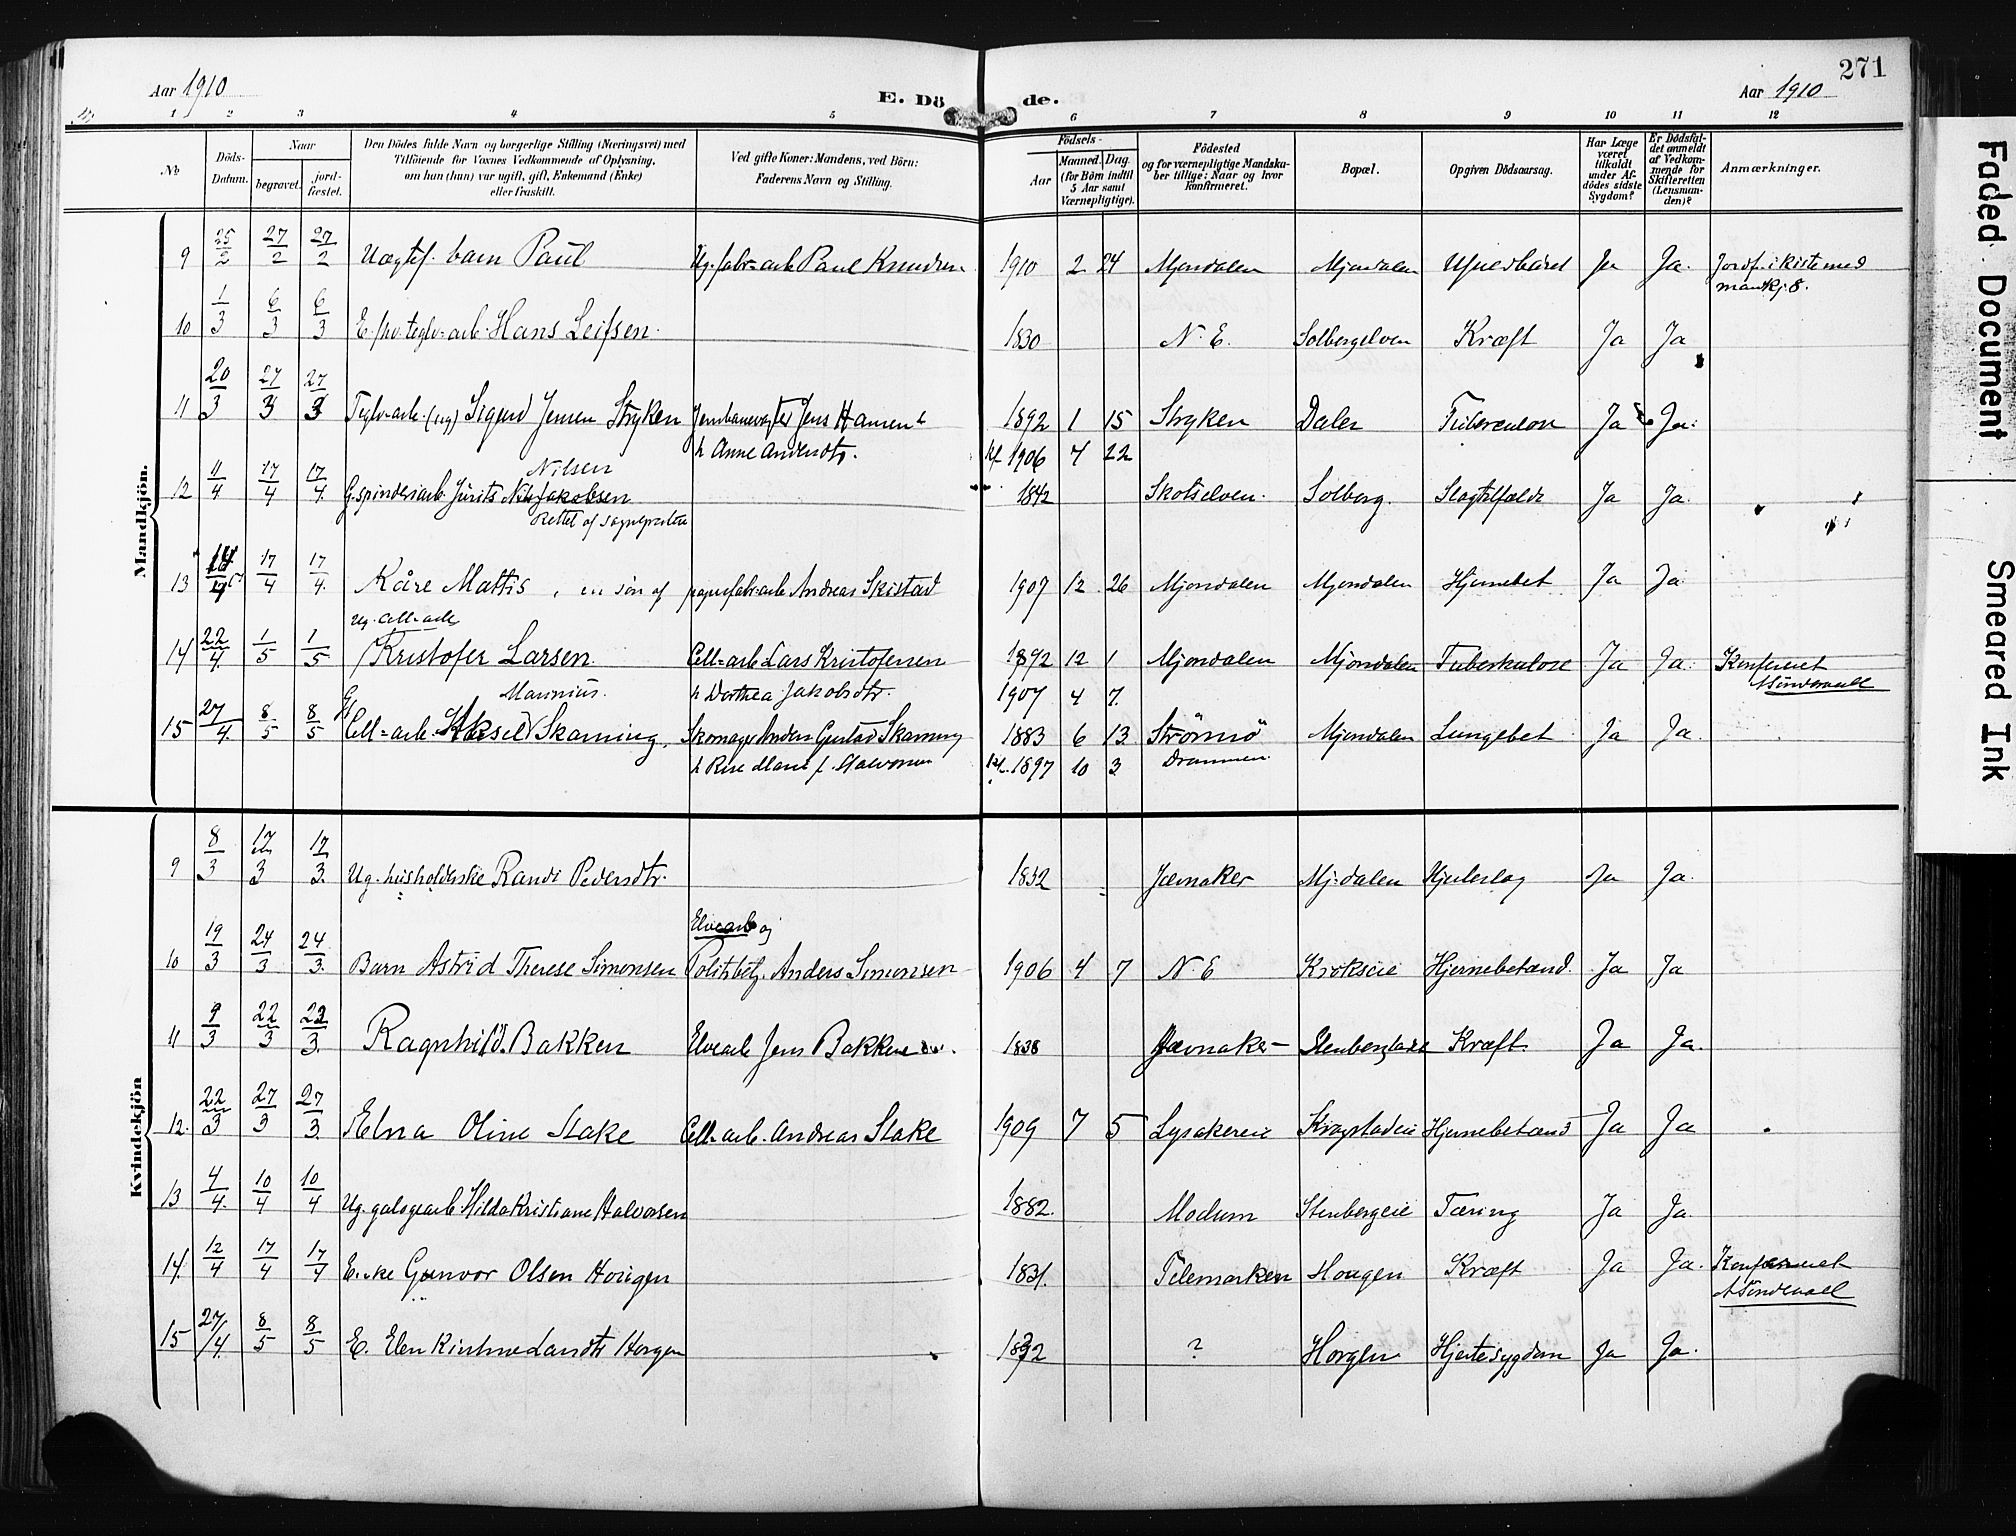 271
Aar 1910
E. Dö de.
Aar 1910
1 2 3 4 5 6 7 8 9 10 11 12
No
Döds-Datum.
Naar
begravet.
jordfæstet.
Den Dödes fulde Navn og borgerlige Stilling (Næringsvei) med
Tilföiende for Voxnes Vedkommende af Oplysning,
om han (hun) var ugift, gift, Enkemand (Enke)
eller fraskilt.
Ved gifte Koner: Mandens, ved Börn:
Faderens Navn og Stilling.
Födsels-
Aar
Maaned. Dag.
(for Börn indtil
5 Aar samt
Værnepligtige).
Födested
og for værnepligtige Mandska-
ber tillige: Naar og hvor
konfirmeret.
Bopæl.
Opgiven Dödsaarsag.
Har Læge
været
tilkaldt
under Af-
dödes sidste
Sygdom?
Er Dödsfal-
det anmeldt
af Vedkom-
mende for
Skifteretten
(Lensman-
den)?
Anmærkninger.
Mandkjön.
9 25/2 27/2 27/2 Uægtef. barn Paul Ug. fabr=arb Paul Knudsen 1910 2 24 Mjøndalen Mjøndalen Ja Ja. Jordf. i kiste med
mandkj. 8.
10 1/3 6/3 6/3 E. fhv. teglv=arb. Hans Leifsen. 1830 N. E. Solbergelven Kræft Ja Ja
11 20/3 27/3 27/3 Teglv=arb. (ug) Sigurd Jensen Stryken Jernbanevogter Jens Hansen & 1892 1 15 Stryken Dalen Tuberculose Ja Ja.
h Anne Andersdtr. kf. 1906 4 22
Nilsen
12 11/4 17/4 17/4 G. spinderiarb Jakobsen 1842 Skotselven. Solberg. Slagtilfælde Ja Ja.
Rettet af sognepresten
13 17/4 17/4 Kåre Mattis, en søn af papirfabr=arb Andreas Skistad 1907 12 26 Mjøndalen Mjøndalen Hjernebet Ja Ja.
Ug. Cell=arb
14 22/4 1/5 1/5 Kristofer Larsen. Cell=arb Lars Kristofersen 1892 12 1 Mjøndalen Mjøndalen Tuberkulose Ja Ja. Konfereret
Marinius. h Dorthea Jakobsdtr. 1907 4 7. ASindevall
15 27/4 8/5 8/5 G Cell=arb. Aksel Skarning. Skomager Anders Gustav Skarning 1883 6 13 Strømsø Mjøndalen Lungebet Ja Ja.
kf. 1897 10 3 Drammen.
Kvindekjön
9 8/3 17/3 17/3 Ug. husholderske Randi Pedersdtr. 1832 Jævnaker Mj=dalen Hjerteslag Ja Ja.
Elvearb og
10 19/3 24/3 24/3 Barn Astrid Therese Simonsen Politibetj. Anders Simonsen 1906 4 7 N. E Krokseie Hjernebetænd. Ja Ja
11 9/3 22/3 22/3 Ragnhild Bakken Elvearb Jens Bakken 1838 Jævnaker Stenbergløkk Kræft. Ja Ja.
12. 22/3 27/3 27/3 Elna Oline Stake Cell=arb. Andreas Stake 1909 7 5 Lysakereie Krogstadeie Hjernebetænd Ja Ja
13 4/4 10/4 10/4 Ug. galogearb Hilda Kristiane Halvorsen 1882. Modum Stenbergeie Tæring Ja Ja.
14. 12/4 17/4 17/4 E.ke Gunvor Olsen Hougen 1821. Telemarken Hougen Kræft Ja Ja. Konfereret
ASindevall
15 27/4 8/5 8/5 E. Elen Kirstine Larsdtr Horgen 1832 ? Horgen Hjertesygdom Ja Ja.
Faded Document
Smeared Ink